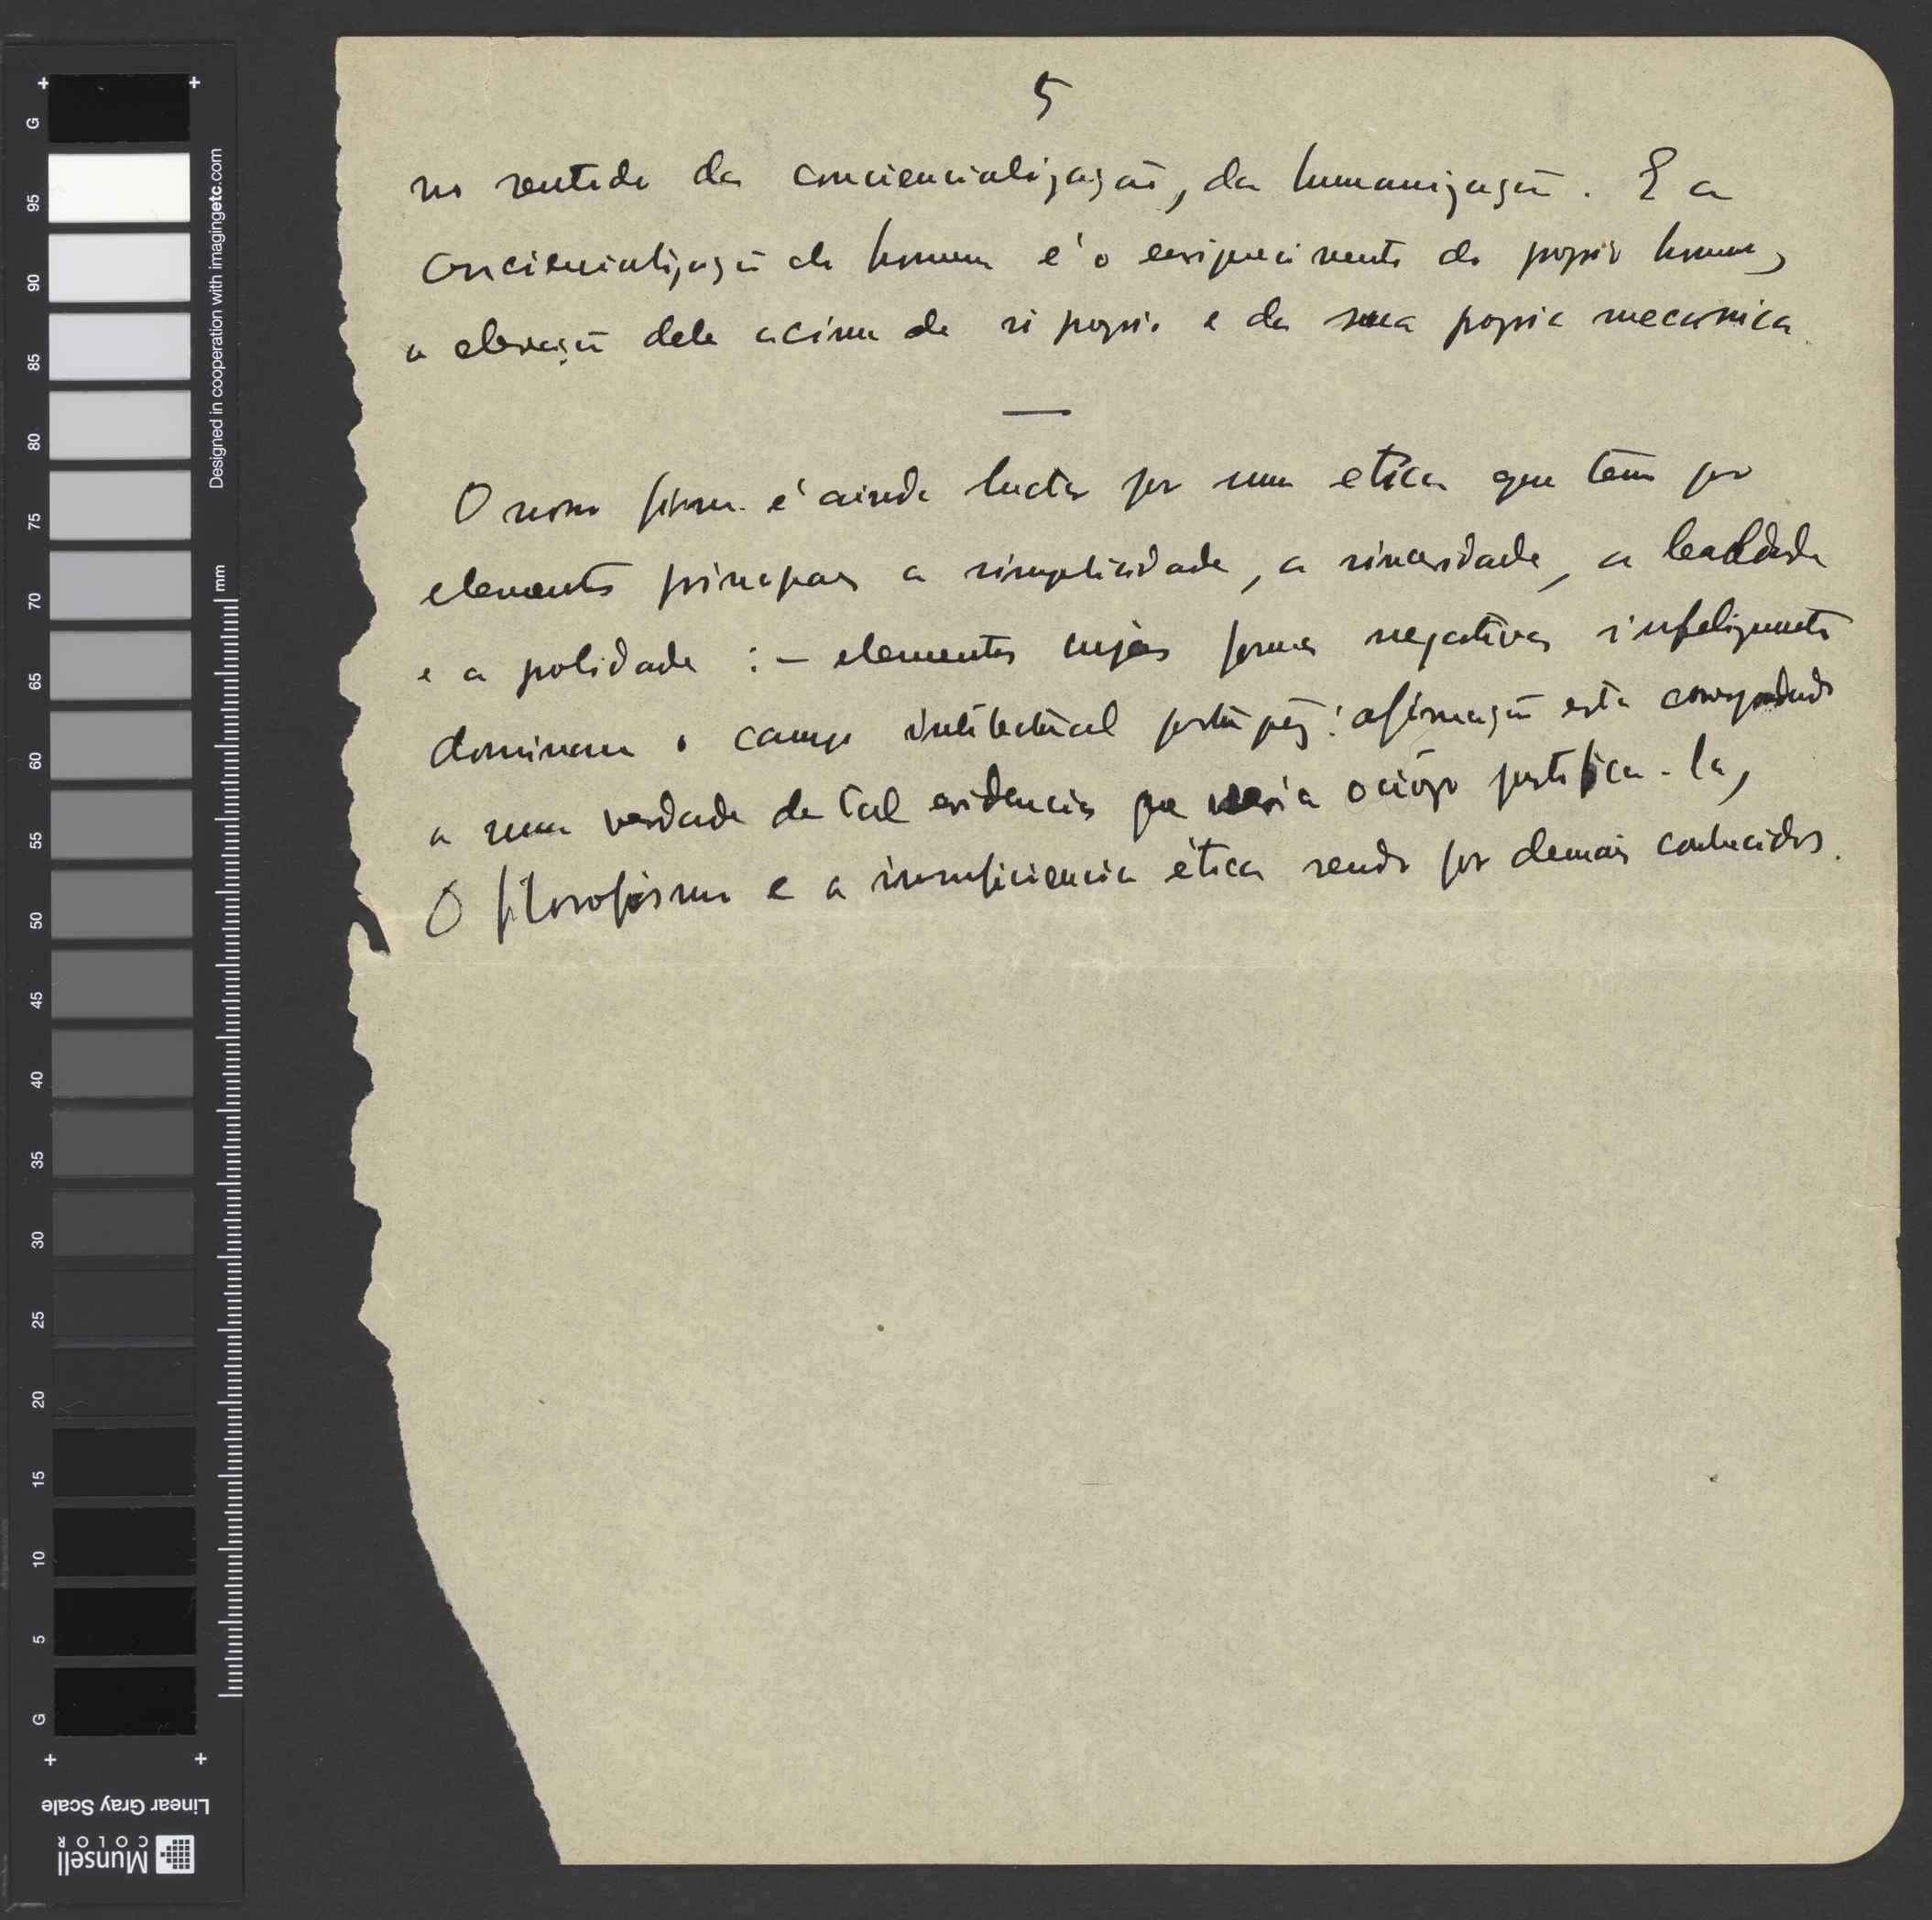 5
no sentido da conciencialização, da humanização. E a
conciencialização do homem é o enriquecimento do proprio homem,
a elevação dele acima de si proprio e da sua propria mecanica.
O nosso é ainda luctar por uma etica que tem por
elementos principaes a simplicidade, a sinceridade, a lealdade
e a polidade : — elementos cujas formas negativas infelizmente
dominam o campo intelectual português: afirmação esta
a uma verdade de tal evidencia que seria ocioso justifica-la,
O filosofismo e a insuficiencia ética sendo por demais conhecidos.
G
95
90
85
80
75
70
65
60
55
50
45
40
35
30
25
20
15
10
5
G
Designed in cooperation with imagingetc.com
mm
Linear Gray Scale
Munsell
COLOR